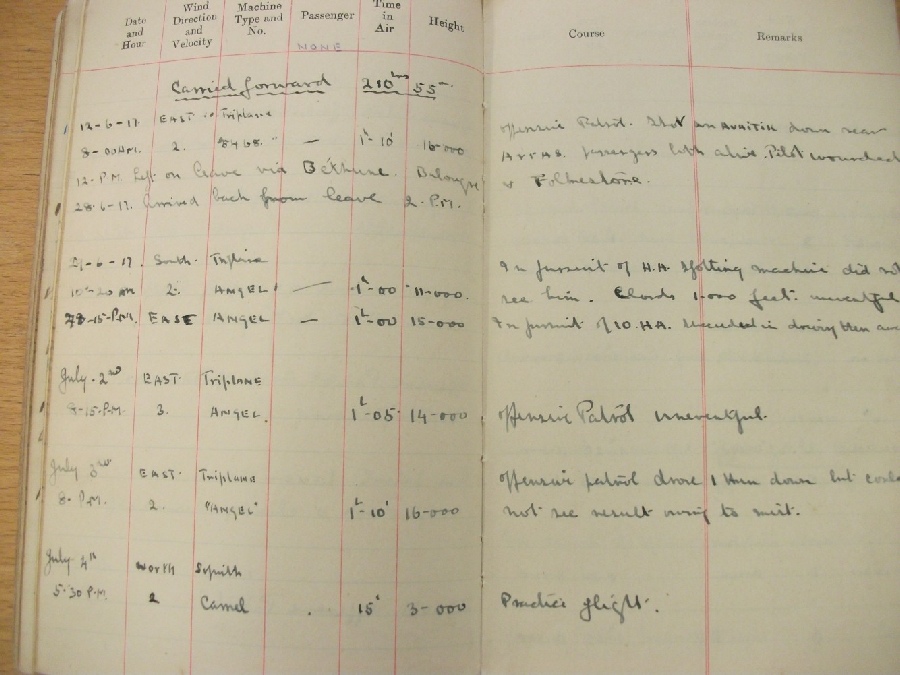 Date and Hour Wind Direction and Velocity Machine Type and No. Passenger Time in Air Height Course Remarks
NONE
Carried forward 210 hrs 55
12-6-17 EAST Triplane offensive Patrol. Shot an AVIATIK down near
8-00AM. 2. — 1h-10' 16-000 ARRAS. passengers both alive. Pilot wounded
12-P.M. Left on leave via Bethune. Bologne & Folkestone.
28-6-17. Arrived back from leave 2-P.M.
-6-17. South. Triplane In pursuit of H.A. Spotting machine did not
10-20 AM 2. ANGEL — 1h-00 11-000. see him. Clouds 1-000 feet. uneventful
-15-P.M. EAST ANGEL — 1h-00 15-000 In pursuit of 10 H.A. Succeeded in driving them
July. 2nd EAST Triplane
-15-P.M. 3. ANGEL. 1h-05' 14-000 offensive Patrol uneventful.
July 3rd EAST. Triplane offensive patrol drove 1 Hun down but could
8- P.M. 2. "ANGEL" 1h-10' 16-000 not see result owing to mist.
July 4th North Sopwith
5-30 P.M. 2 Camel . 15' 3-000 Practice flight.